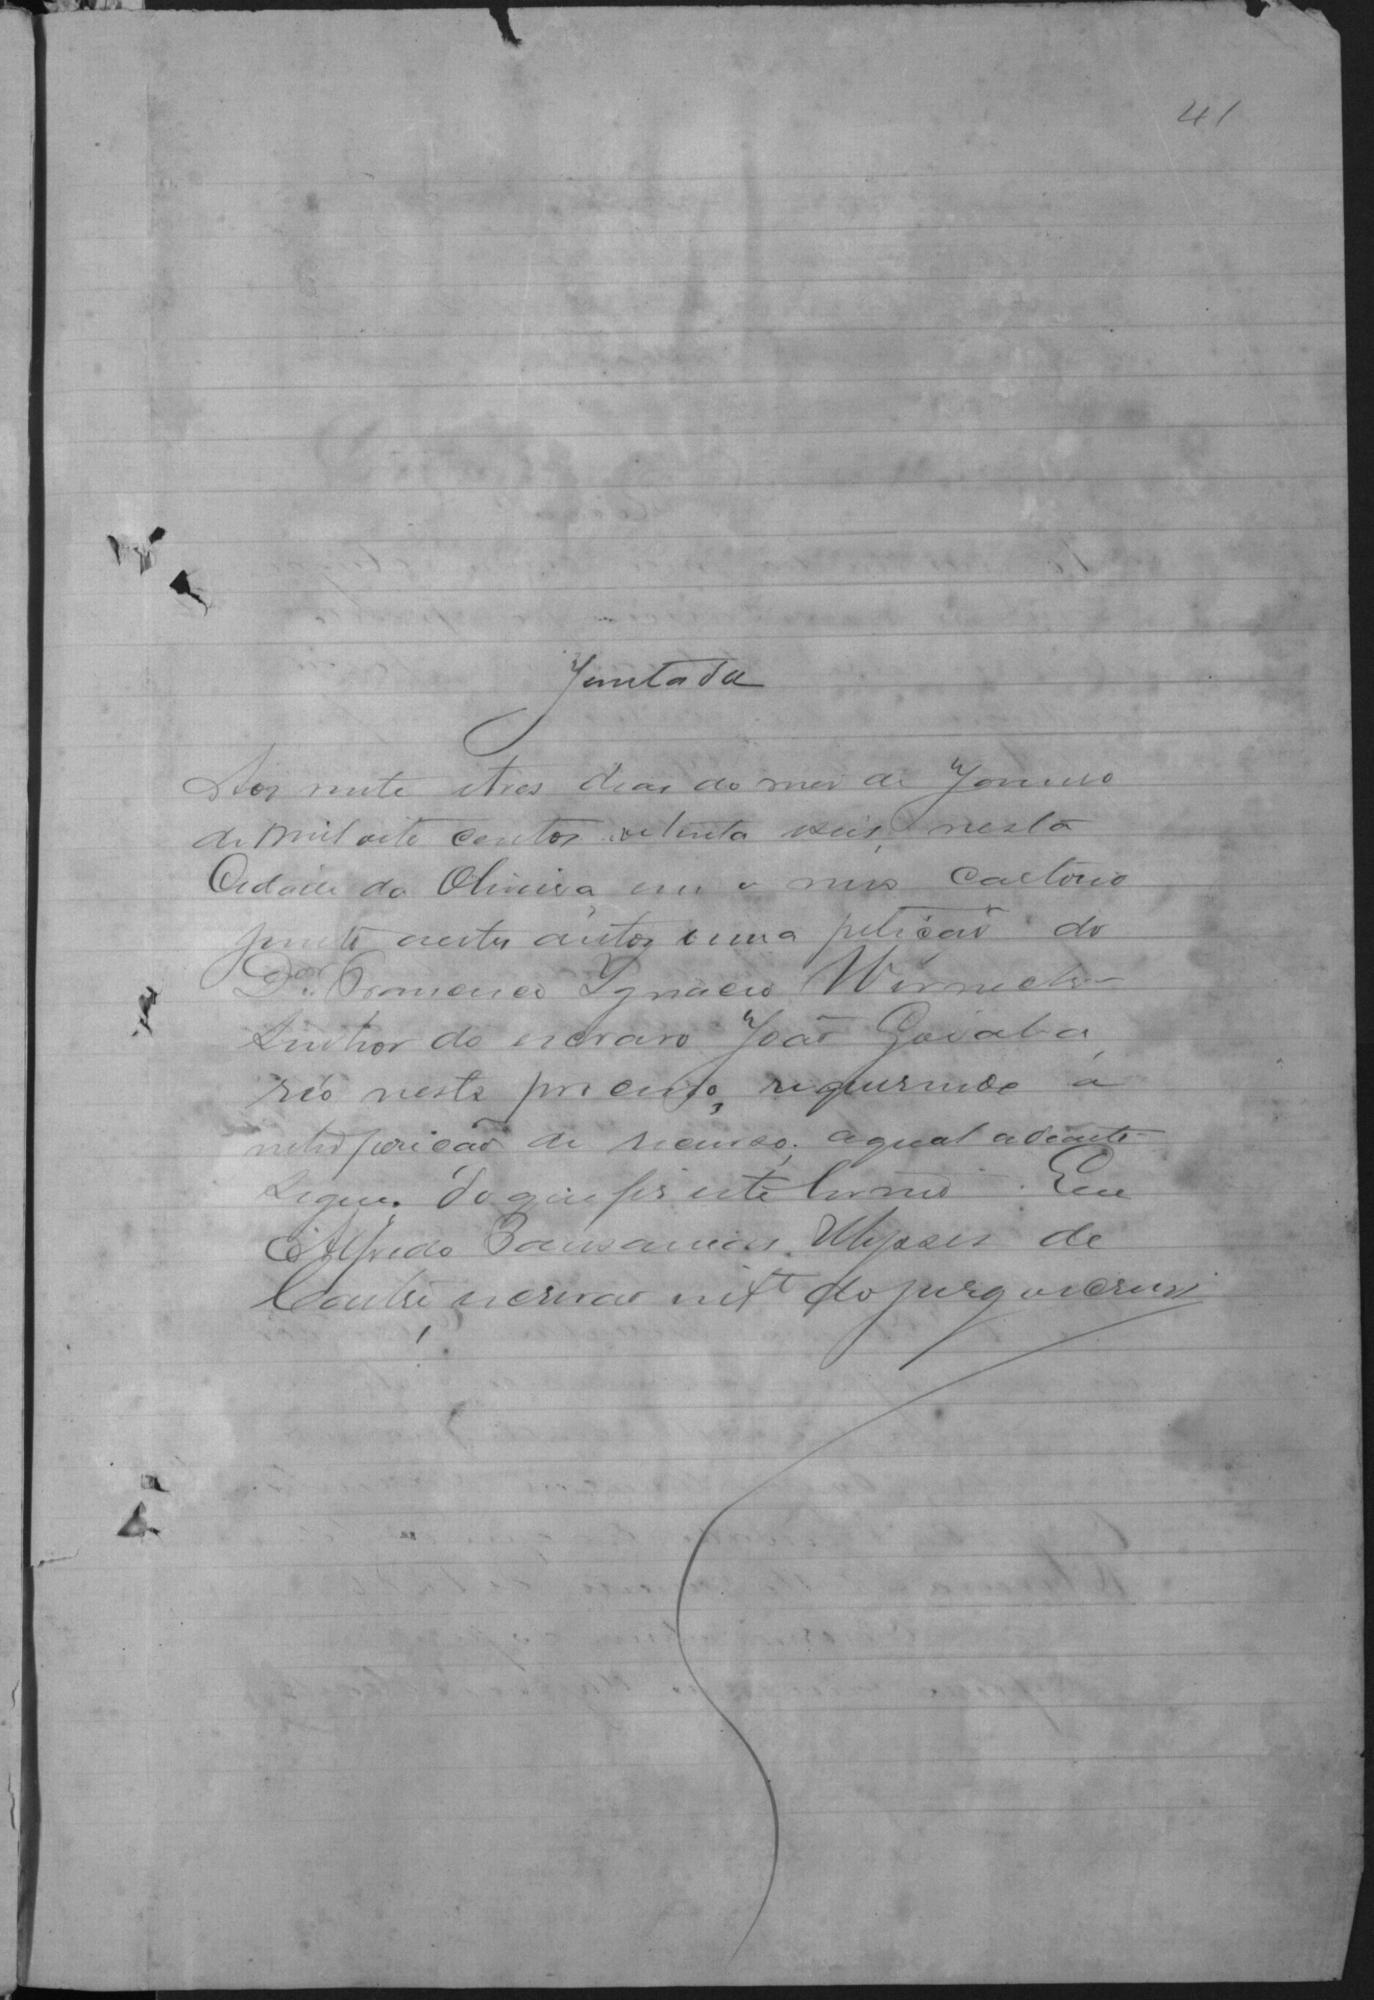 41
Juntada
Aos vinte e tres dias do mez de Janeiro
de mil oito centos oitenta e seis, nesta
Cidade da Oliveira em o meu Cartorio
junto a estes autos uma petição do
Dr. Francisco Ignacio Werneck
Senhor do escravo João Goiaba,
réo neste processo, requerendo a
interposição de recurso, a qual adiante
segue. Do que fiz este termo. Eu
Alfredo Pausanias Ulysses de
Castro escrivão int do jury o escrevi